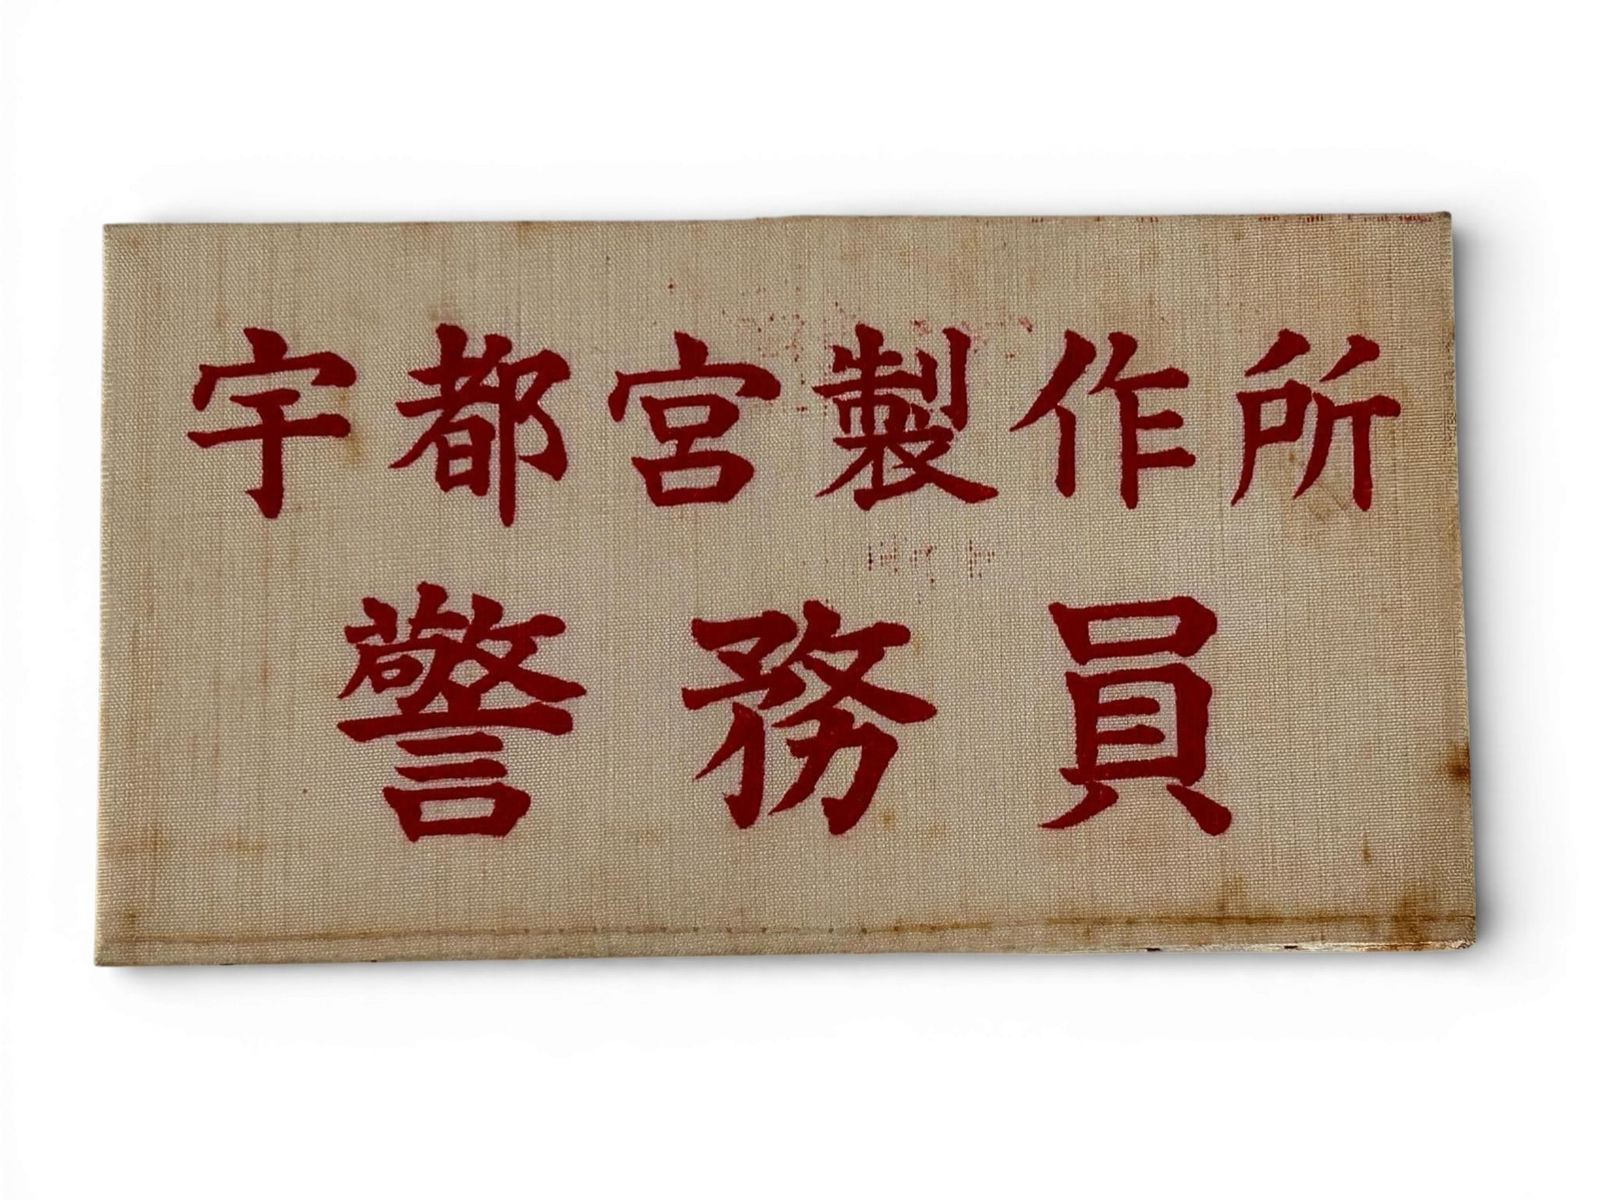 宇都宮製作所
警務員